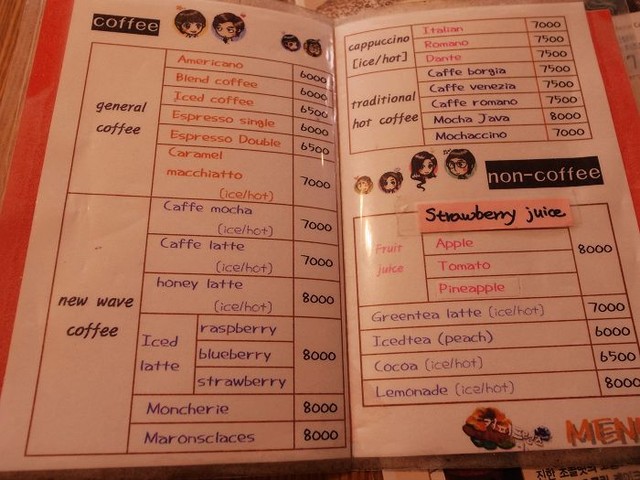 coffee
general
coffee
Americano
6000
Blend coffee
6000
Iced coffee
6500
Espresso single
6000
Espresso Double
6500
Caramel
macchiatto
(ice/hot)
7000
new wave
coffee
Caffe mocha
(ice/hot)
7000
Caffe latte
(ice/hot)
7000
honey latte
(ice/hot)
8000
Iced
latte
raspberry
blueberry
strawberry
8000
Moncherie
8000
Maronsclaces
8000
cappuccino
[ice/hot]
Italian
7000
Romano
7500
Dante
7500
traditional
hot coffee
Caffe borgia
7500
Caffe venezia
7500
Caffe romano
7500
Mocha Java
8000
Mochaccino
7000
non-coffee
Strawberry juice
Fruit
juice
Apple
Tomato
Pineapple
8000
Greentea latte (ice/hot)
7000
Icedtea (peach)
6000
Cocoa (ice/hot)
6500
Lemonade (ice/hot)
8000
MEN